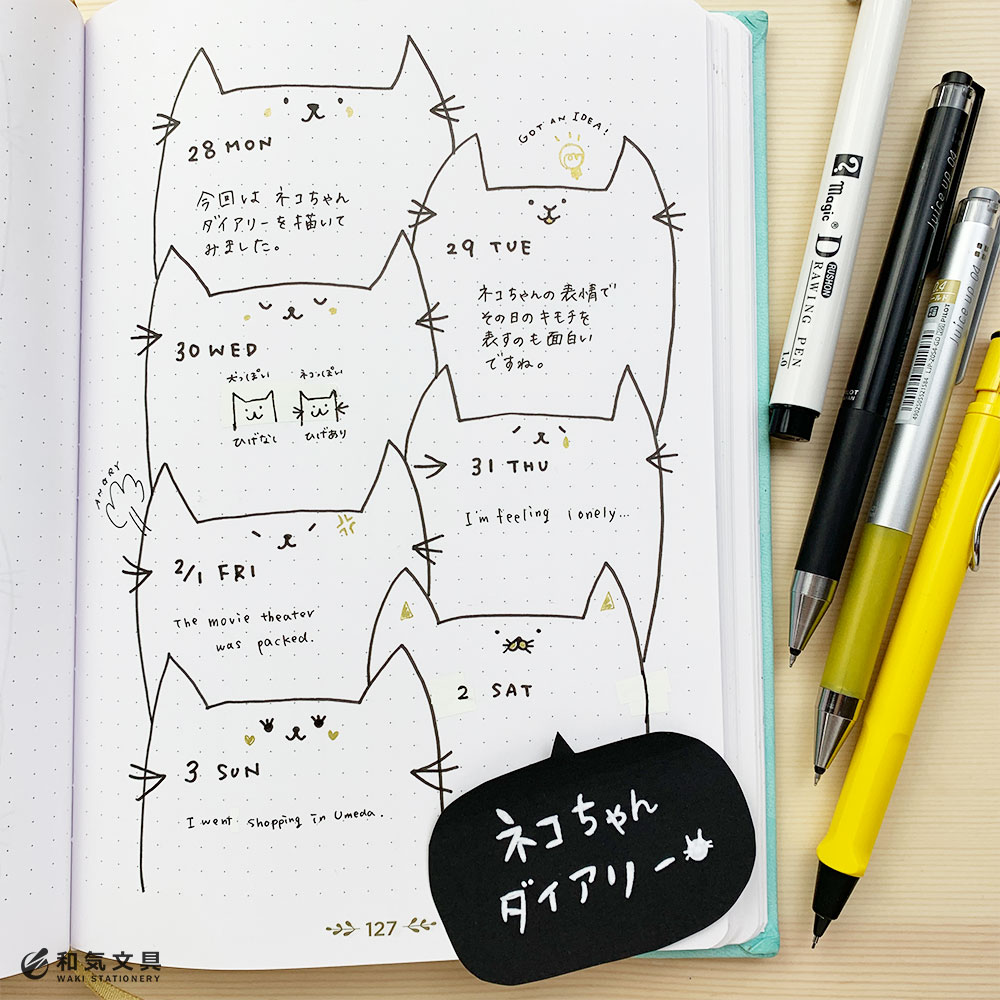 28 MON
今回は ネコちゃん
ダイアリーを描いて
みました。
GOT AN IDEA!
29 TUE
ネコちゃんの表情で
その日のキモチを
表すのも面白い
ですね。
30 WED
犬っぽい ネコっぽい
ひげなし ひげあり
31 THU
I'm feeling lonely...
ANGRY
2/1 FRI
The movie theater
was packed.
2 SAT
3 SUN
I went shopping in Umeda.
ネコちゃん
ダイアリー
127
和気文具
WAKI STATIONERY
magic®
DRAWING PEN
RUSHON
1.0
Juice up 04
Juice up 04
PILOT
LJP-20S4-GD
4902505521584